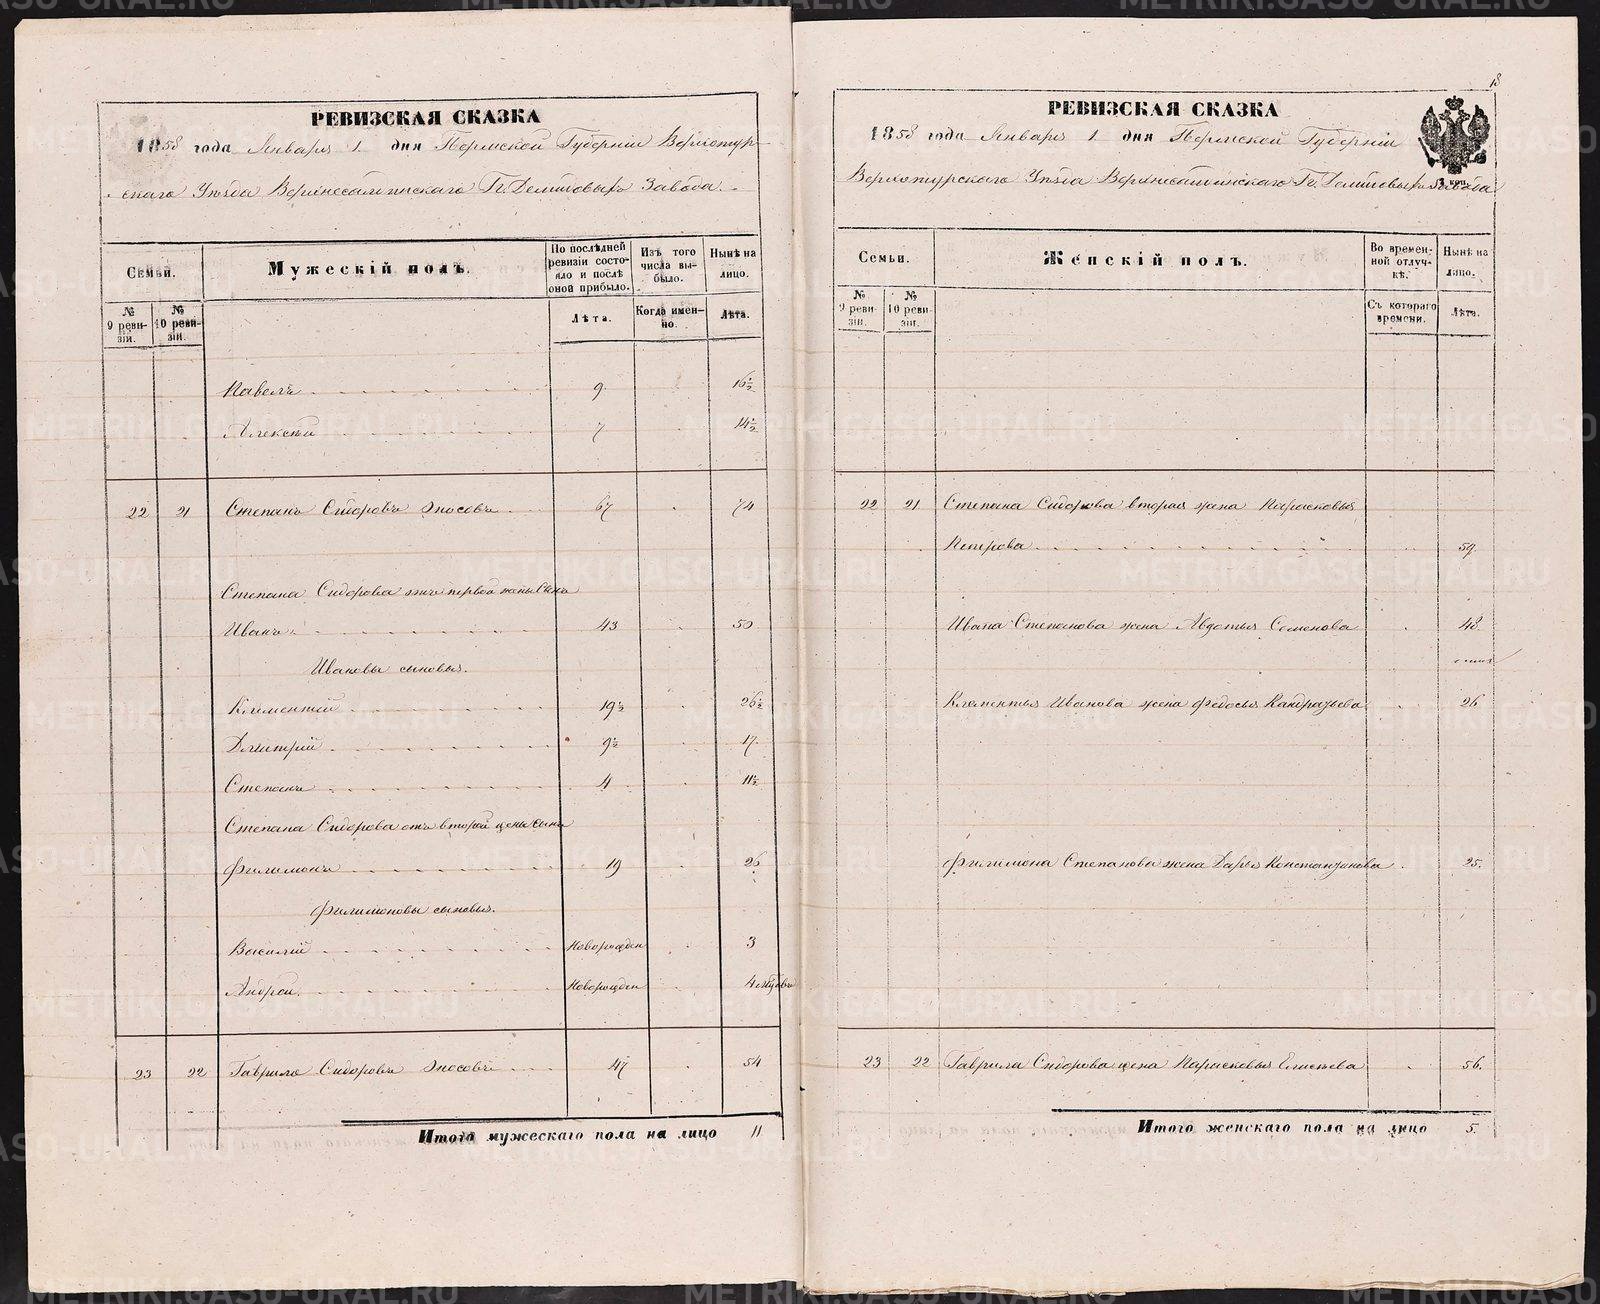 РЕВИЗСКАЯ СКАЗКА
1858 года Января 1 дня Пермской Губерніи Верхотур-
скаго Уѣзда Верхнесалдинскаго Гг. Демидовыхъ Завода.
Семьи.
Мужескій полъ.
По послѣдней ревизіи состояло и послѣ оной прибыло.
Изъ того числа выбыло.
Нынѣ на лицо.
№ 9 ревизіи.
№ 10 ревизіи.
Лѣта.
Когда именно.
Лѣта.
Павелъ 9. 16½
Алексѣй 7 14½
22 21 Степанъ Сидоровъ 67 74
Степана Сидорова отъ первой жены сынъ
Иванъ 43 50
Ивановы сыновья.
Климентій 19½ 26½
Дмитрій 9½ 17.
Степанъ 4 11½
Степана Сидорова отъ второй жены сынъ
Филимонъ 19 26
Филимоновы сыновья.
Василій новорожден 3
Андрей новорожден 4
23 22 Гаврило Сидоровъ 47 54
Итого мужескаго пола на лицо 11
РЕВИЗСКАЯ СКАЗКА
1858 года Января 1 дня Пермской Губерніи
Верхотурскаго Уѣзда Верхнесалдинскаго Гг. Демидовыхъ Завода
Семьи.
Женскій полъ.
Во временной отлучкѣ.
Нынѣ на лицо.
№ 9 ревизіи.
№ 10 ревизіи.
Съ котораго времени.
Лѣта.
22 21 Степана Сидорова вторая жена Парасковья
Петрова 59.
Ивана Степанова жена Авдотья Семенова 48.
Клементья Иванова жена Федосья Кандратьева 26
Филимона Степанова жена Дарья Константинова 25.
23 22 Гаврила Сидорова жена Парасковья Елисѣева 56.
Итого женскаго пола на лицо 5.
METRIKI.GASO-URAL.RU